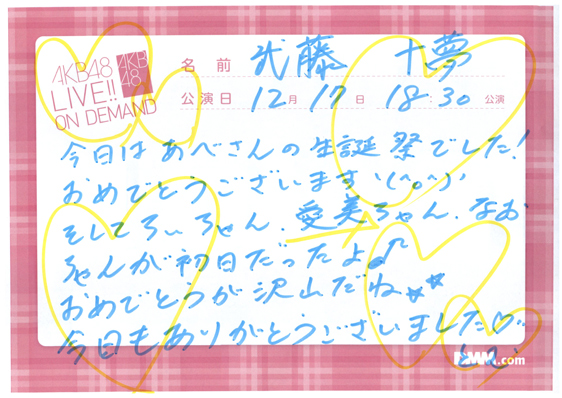 AKB48
LIVE!!
ON DEMAND
AKB
48
名前 武藤 十夢
公演日 12月17日 18:30 公演
今日はあべさんの生誕祭でした!
おめでとうございます\(^o^)/
そしてろぃちゃん、愛美ちゃん、なお
ちゃんが初日だったよ♪
おめでとうが沢山だね★★
今日もありがとうございました♡
DMM.com